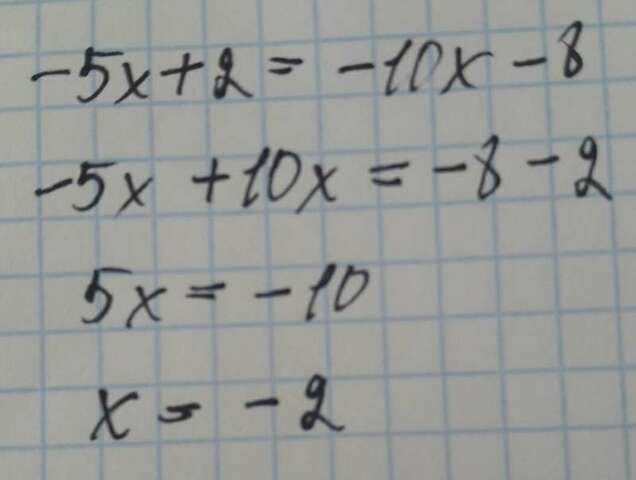 -5x+2 = -10x-8
-5x +10x = -8-2
5x = -10
x = -2